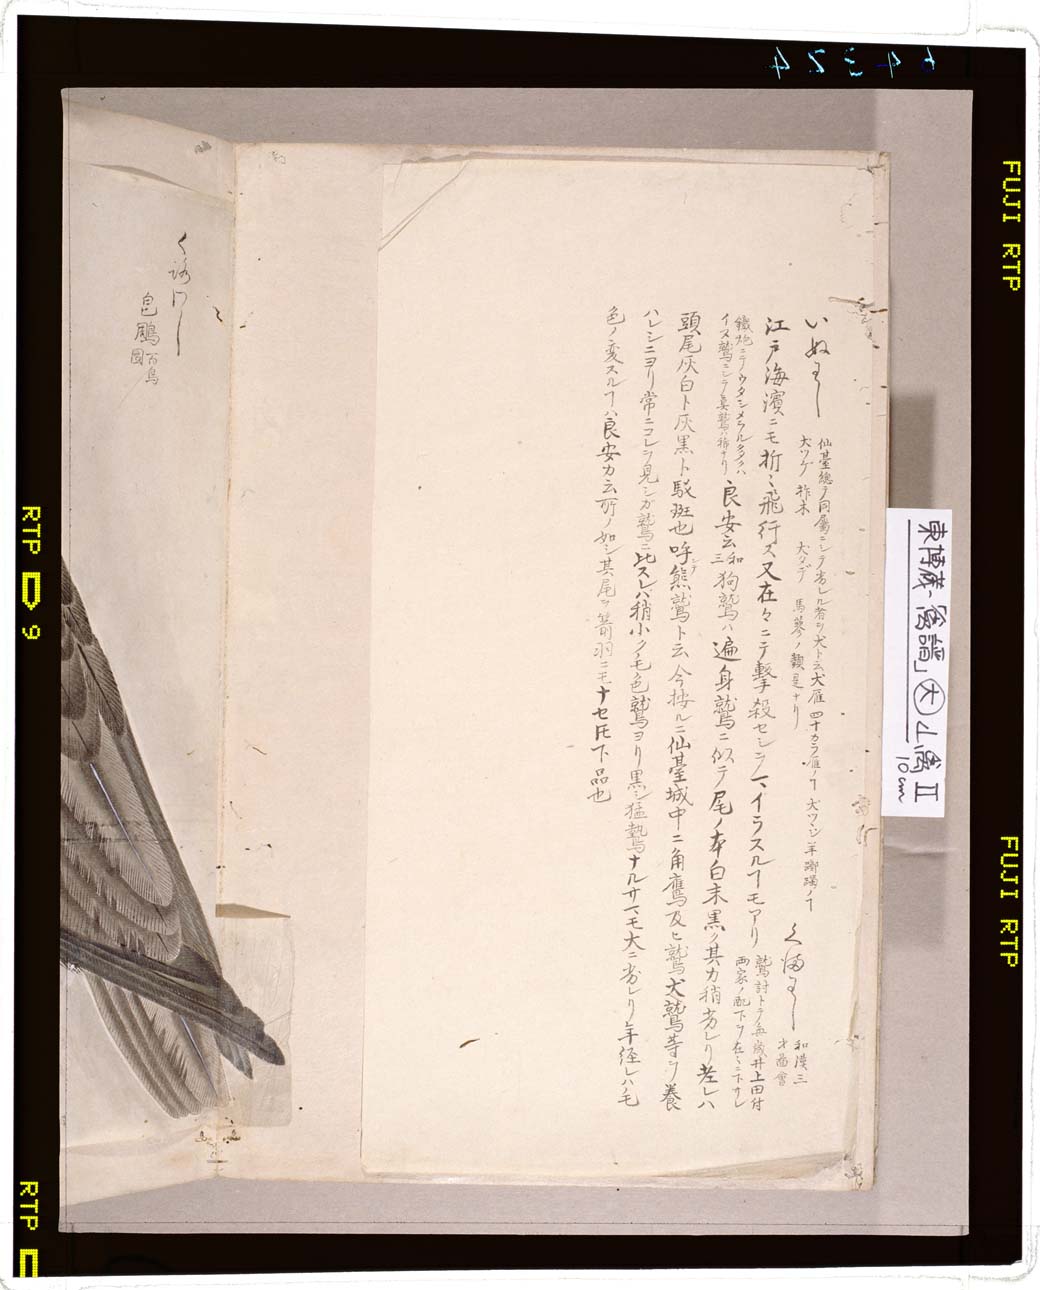 64324
FUJI RTP
FUJI RTP
RTP 9
RTP
東博蔵「禽譜」大 山禽 Ⅱ
10cm
いぬわし
仙臺總テ同屬ニシテ劣レル者ヲ犬ト云犬雁
大ツゲ 柞木 犬タデ 馬蓼ノ類是ナリ
くまわし
和漢三
才圖會
江戸海濱ニモ折々飛行ス又在々ニテ撃殺セシヲヿイラスルヿモアリ
鷲討トテ毎歳井上田付
両家ノ配下ヲ在々ニ下サレ
鐵炮ニテウタシメラル多クハ
イヌ鷲ニシテ真鷲ハ稀ナリ
良安云 和三 狗鷲ハ遍身鷲ニ似テ尾ノ本白末黒ク其力稍劣レリ老レハ
頭尾灰白ト灰黒ト駁斑也呼シテ熊鷲ト云今按ルニ仙臺城中ニ角鷹及ヒ鷲犬鷲等ヲ養
ハレシニヨリ常ニコレヲ見シガ鷲ニ比スレハ稍小クモ色鷲ヨリ黒シ猛鷙ナルサマモ大ニ劣レリ年経レハノモ
色ノ変スルヿハ良安カ云所ノ如シ其尾ヲ箭羽ニモナセ𪜈下品也
くろわし
皂鵰
百鳥
圖